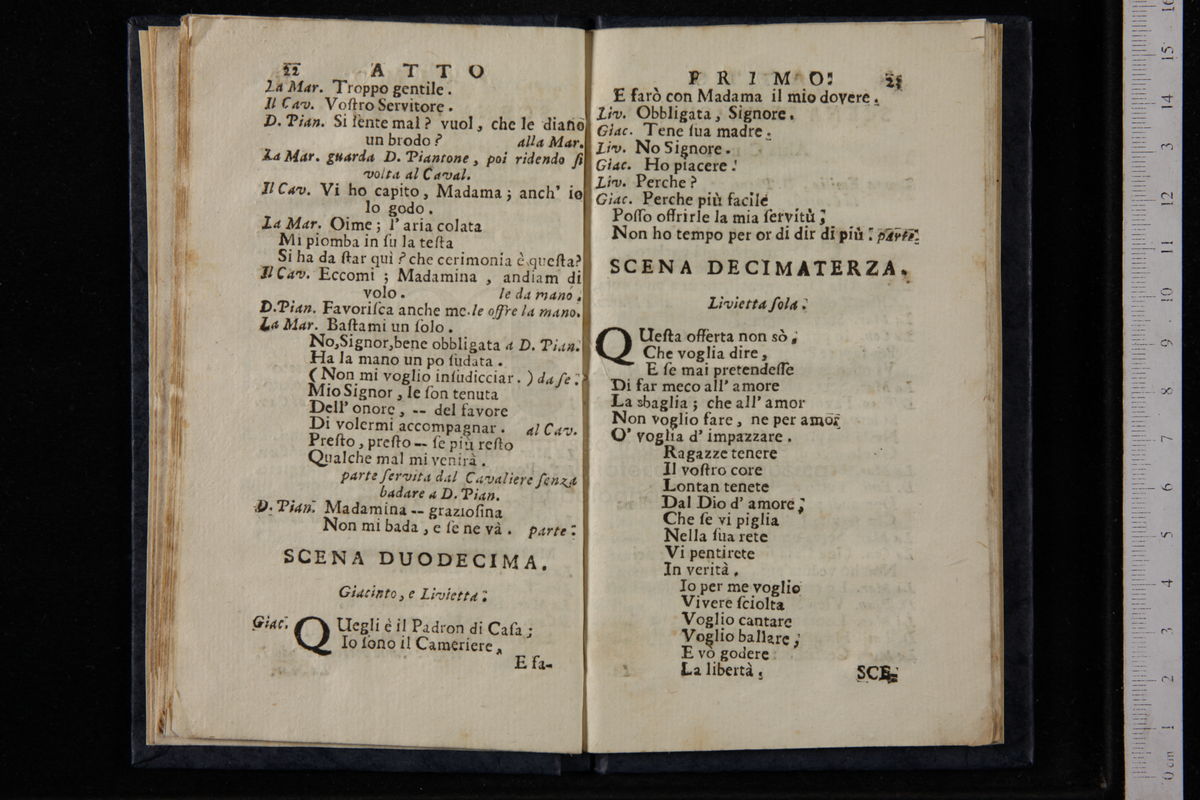 22 ATTO
La Mar. Troppo gentile.
Il Cav. Voſtro Servitore.
D. Pian. Si ſente mal? vuol, che le diano
un brodo? alla Mar.
La Mar. guarda D. Piantone, poi ridendo ſi
volta al Caval.
Il Cav. Vi ho capito, Madama; anch' io
lo godo.
La Mar. Oime; l'aria colata
Mi piomba in ſu la teſta
Si ha da ſtar quì? che cerimonia è queſta?
Il Cav. Eccomi; Madamina, andiam di
volo. le da mano.
D. Pian. Favoriſca anche me. le offre la mano.
La Mar. Baſtami un ſolo.
No, Signor, bene obbligata a D. Pian.
Ha la mano un po ſudata.
(Non mi voglio inſudicciar.) da ſe.
Mio Signor, le ſon tenuta
Dell' onore, -- del favore
Di volermi accompagnar. al Cav.
Preſto, preſto -- ſe più reſto
Qualche mal mi venirà.
parte ſervita dal Cavaliere ſenza
badare a D. Pian.
D. Pian. Madamina -- grazioſina
Non mi bada, e ſe ne và. parte.
SCENA DUODECIMA.
Giacinto, e Livietta.
Giac. QUegli è il Padron di Caſa;
Io ſono il Cameriere,
E fa-
PRIMO.
E farò con Madama il mio dovere.
Liv. Obbligata, Signore.
Giac. Tene ſua madre.
Liv. No Signore.
Giac. Ho piacere.
Liv. Perche?
Giac. Perche più facile
Poſſo offrirle la mia ſervitù;
Non ho tempo per or di dir di più. parte.
SCENA DECIMATERZA.
Livietta ſola.
QUeſta offerta non sò;
Che voglia dire,
E ſe mai pretendeſſe
Di far meco all' amore
La sbaglia; che all' amor
Non voglio fare, ne per amor
O' voglia d' impazzare.
Ragazze tenere
Il voſtro core
Lontan tenete
Dal Dio d' amore;
Che ſe vi piglia
Nella ſua rete
Vi pentirete
In verità.
Io per me voglio
Vivere ſciolta
Voglio cantare
Voglio ballare;
E vò godere
La libertà.
SCE-
0 cm 1 2 3 4 5 6 7 8 9 10 11 12 13 14 15 16